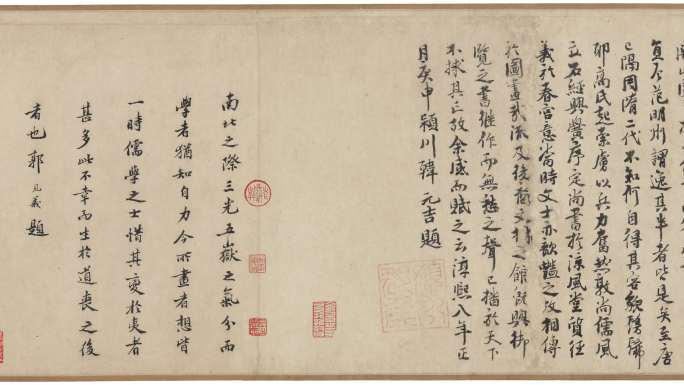 范明州謂逸其半者皆是矣至唐
已隔周隋二代不知何自得其容貌髣髴
高氏起索虜以兵力奮然敦尚儒風
立石經興黌序定尚書於涼風堂質經
義於春宮意當時文士亦歆豔之故相傳
於圖畫及後齊文林之館既興御
覽之書継作而無愁之聲已播於天下
不捄其亡故余感而賦之云淳熙八年正
月庚申潁川韓元吉題
南北之際三光五嶽之氣分而
學者猶知自力今所畫者想皆
一時儒學之士惜其變於夷者
甚多此不幸而生於道喪之後
者也郭見義題